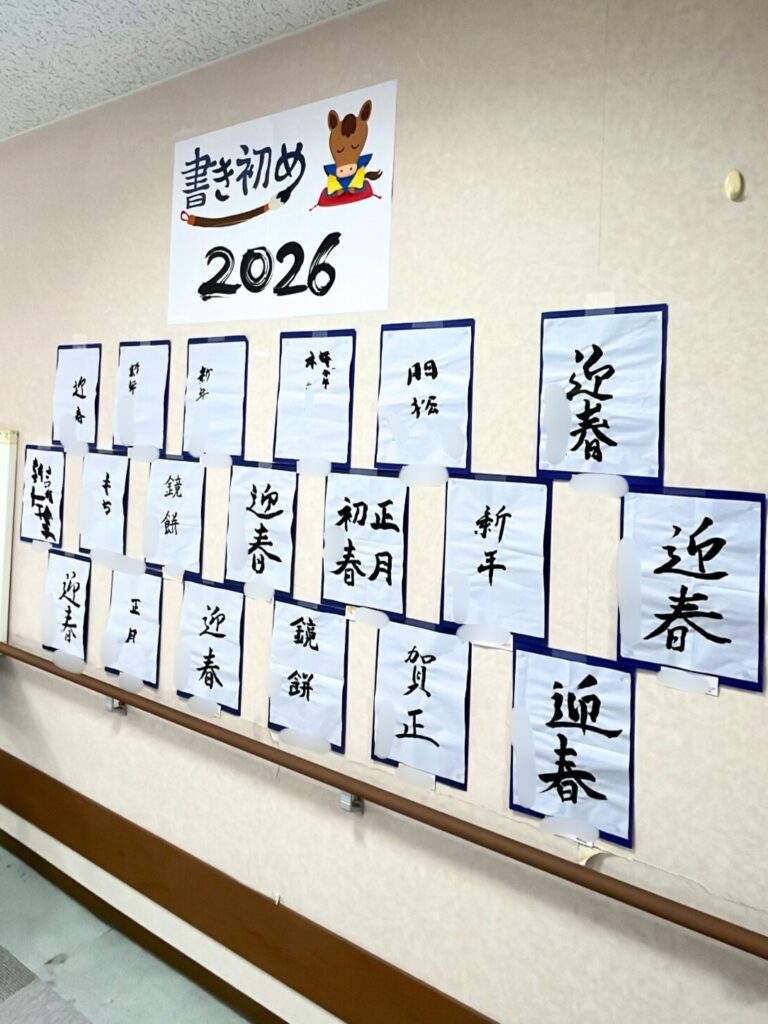 書き初め
2026
迎春
新年
新年
門松
迎春
もち
鏡餅
迎春
正月
初春
新年
迎春
迎春
正月
迎春
鏡餅
賀正
迎春